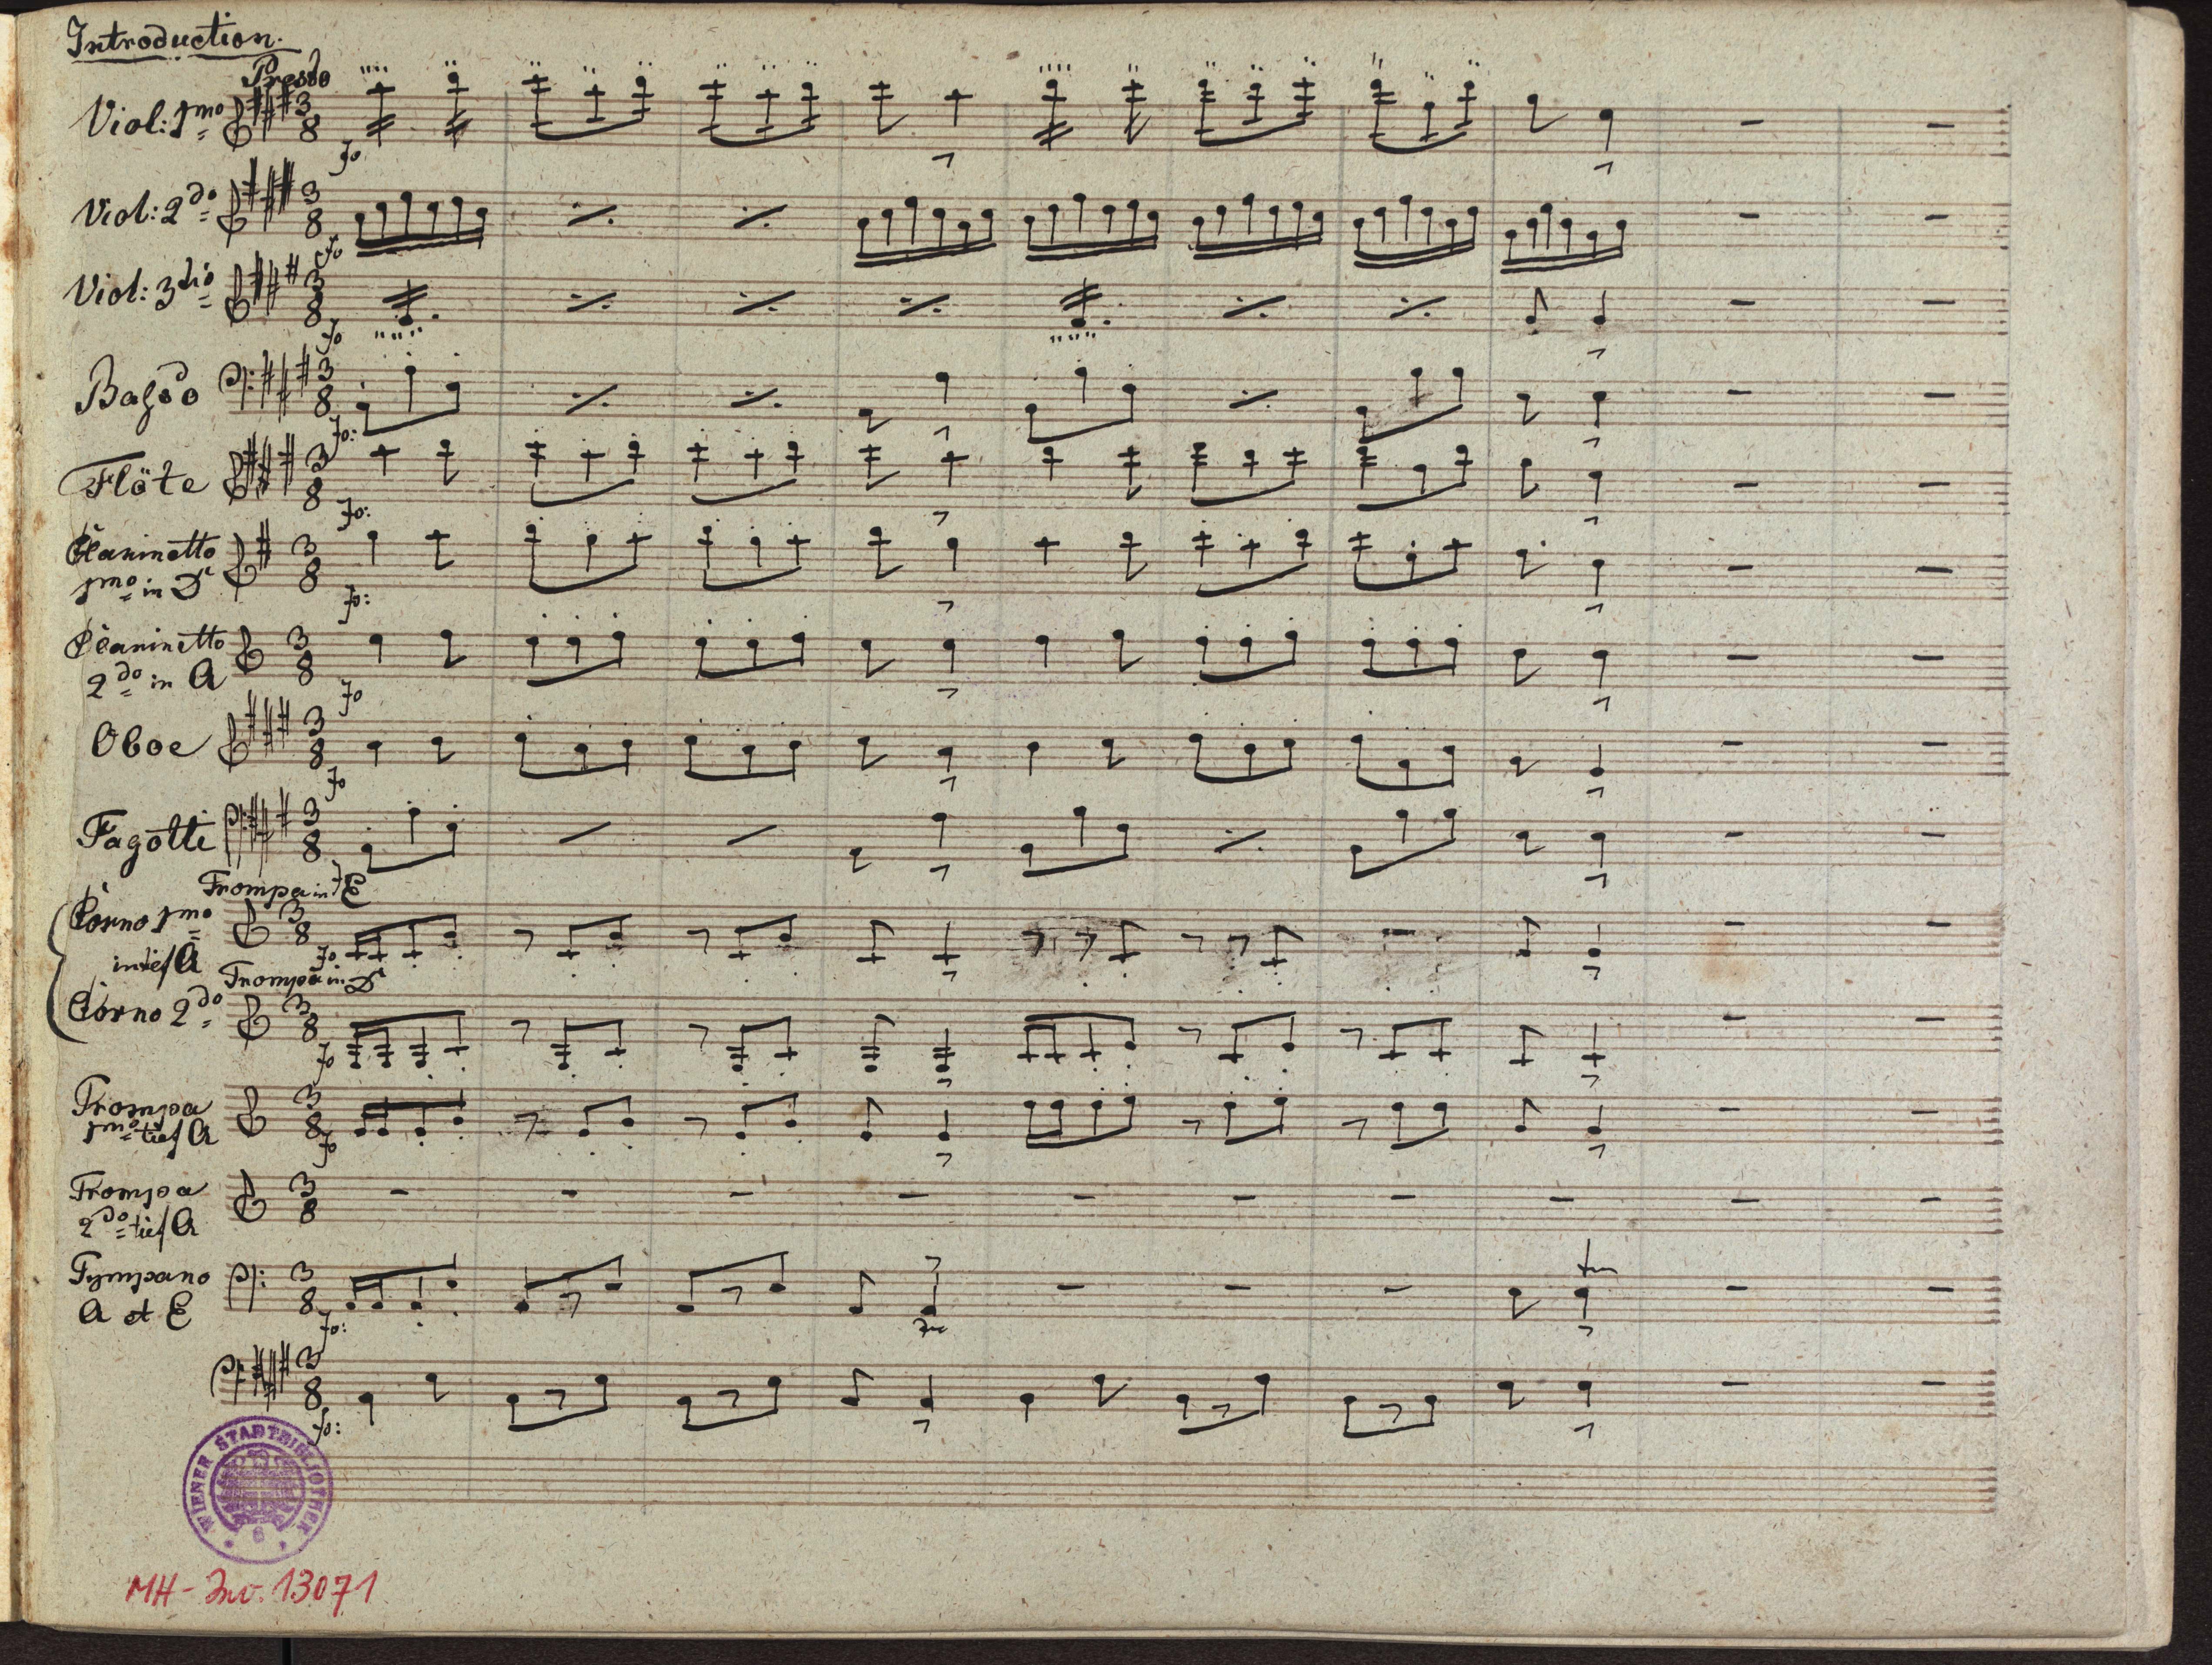 Introduction.
Presto
Viol: 1mo 3 8
fo
Viol: 2do 3 8
fo
Viol: 3tio 3 8
fo
Basso 3 8
fo:
Flöte 3 8
fo:
Clarinetto 3 8
1mo in D
fo:
Clarinetto 3 8
2do in A
fo
Oboe 3 8
fo
Fagotti 3 8
Trompa in E
Corno 1mo 3 8
in tief A fo
Trompa in D
Corno 2do 3 8
fo
Trompa 3 8
1mo tief A
fo
Trompa 3 8
2do tief A
Tympano 3 8
A et E
fo:
3 8
fo:
WIENER STADTBIBLIOTHEK
6
MH-Inv. 13071